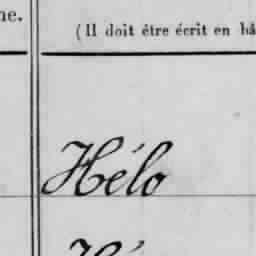 ne.
(Il doit être écrit en bâ
Hélo